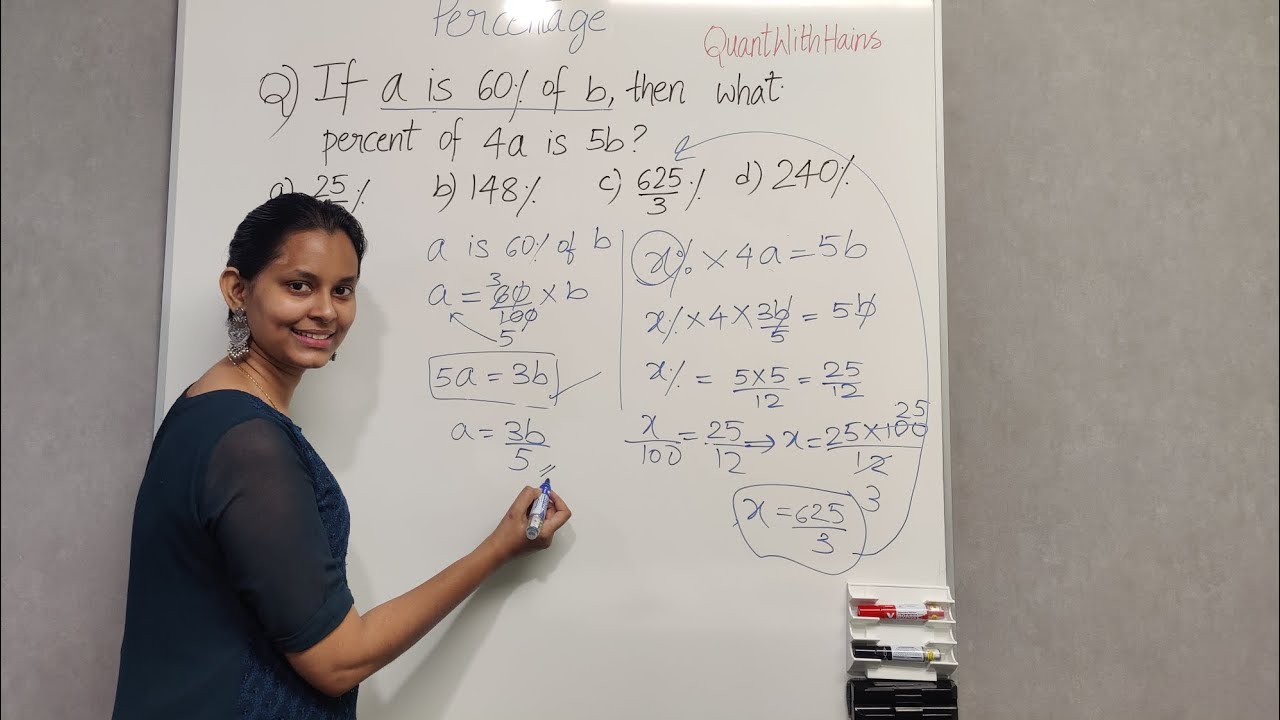 Percentage
QuantWithHains
Q) If a is 60% of b, then what
percent of 4a is 5b?
a) 25 % b) 148% c) 625/3 % d) 240%
a is 60% of b
a = 60/100 × b
3
5
5a = 3b
a = 3b/5
x% × 4a = 5b
x% × 4 × 3b/5 = 5b
x% = 5×5/12 = 25/12
x/100 = 25/12 ⇒ x = 25×100/12
25
3
x = 625/3